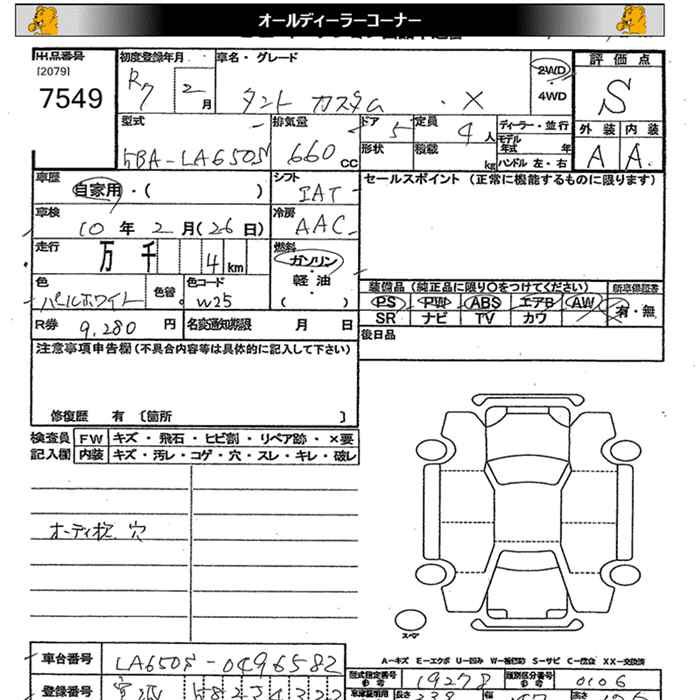 オールディーラーコーナー
出品番号
[2079]
7549
初度登録年月
R7 2月
車名・グレード
タント カスタム ・ X
2WD
・
4WD
評価点
S
外装 内装
A A
型式
5BA-LA650S
排気量
660 CC
ドア 5
形状
定員 4 人
積載 kg
ディーラー・並行
モデル年式 年
ハンドル 左・右
車歴
自家用・( )
シフト
IAT
セールスポイント (正常に機能するものに限ります)
車検
10年2月(26日)
冷房
AAC
走行
万千 4 km
燃料
ガソリン
・
軽油
( )
色
パールホワイト
色替
色コード
W25
装備品(純正品に限り〇をつけてください)
新車保証書
PS PW ABS エアB AW
有・無
SR ナビ TV カワ
R券 9,280 円
名変通知期限 月 日
後日品
注意事項申告欄(不具合内容等は具体的に記入して下さい)
修復歴 有 〔箇所 〕
検査員記入欄
FW キズ・飛石・ヒビ割・リペア跡・×要
内装 キズ・汚レ・コゲ・穴・スレ・キレ・破レ
オーディオ枕、穴
スペア
A-キズ E-エクボ U-凹み W-補修跡 S-サビ C-腐食 XX-交換済
車台番号 LA650S-0496582
型式指定番号 19278
類別区分番号 0106
登録番号
長さ